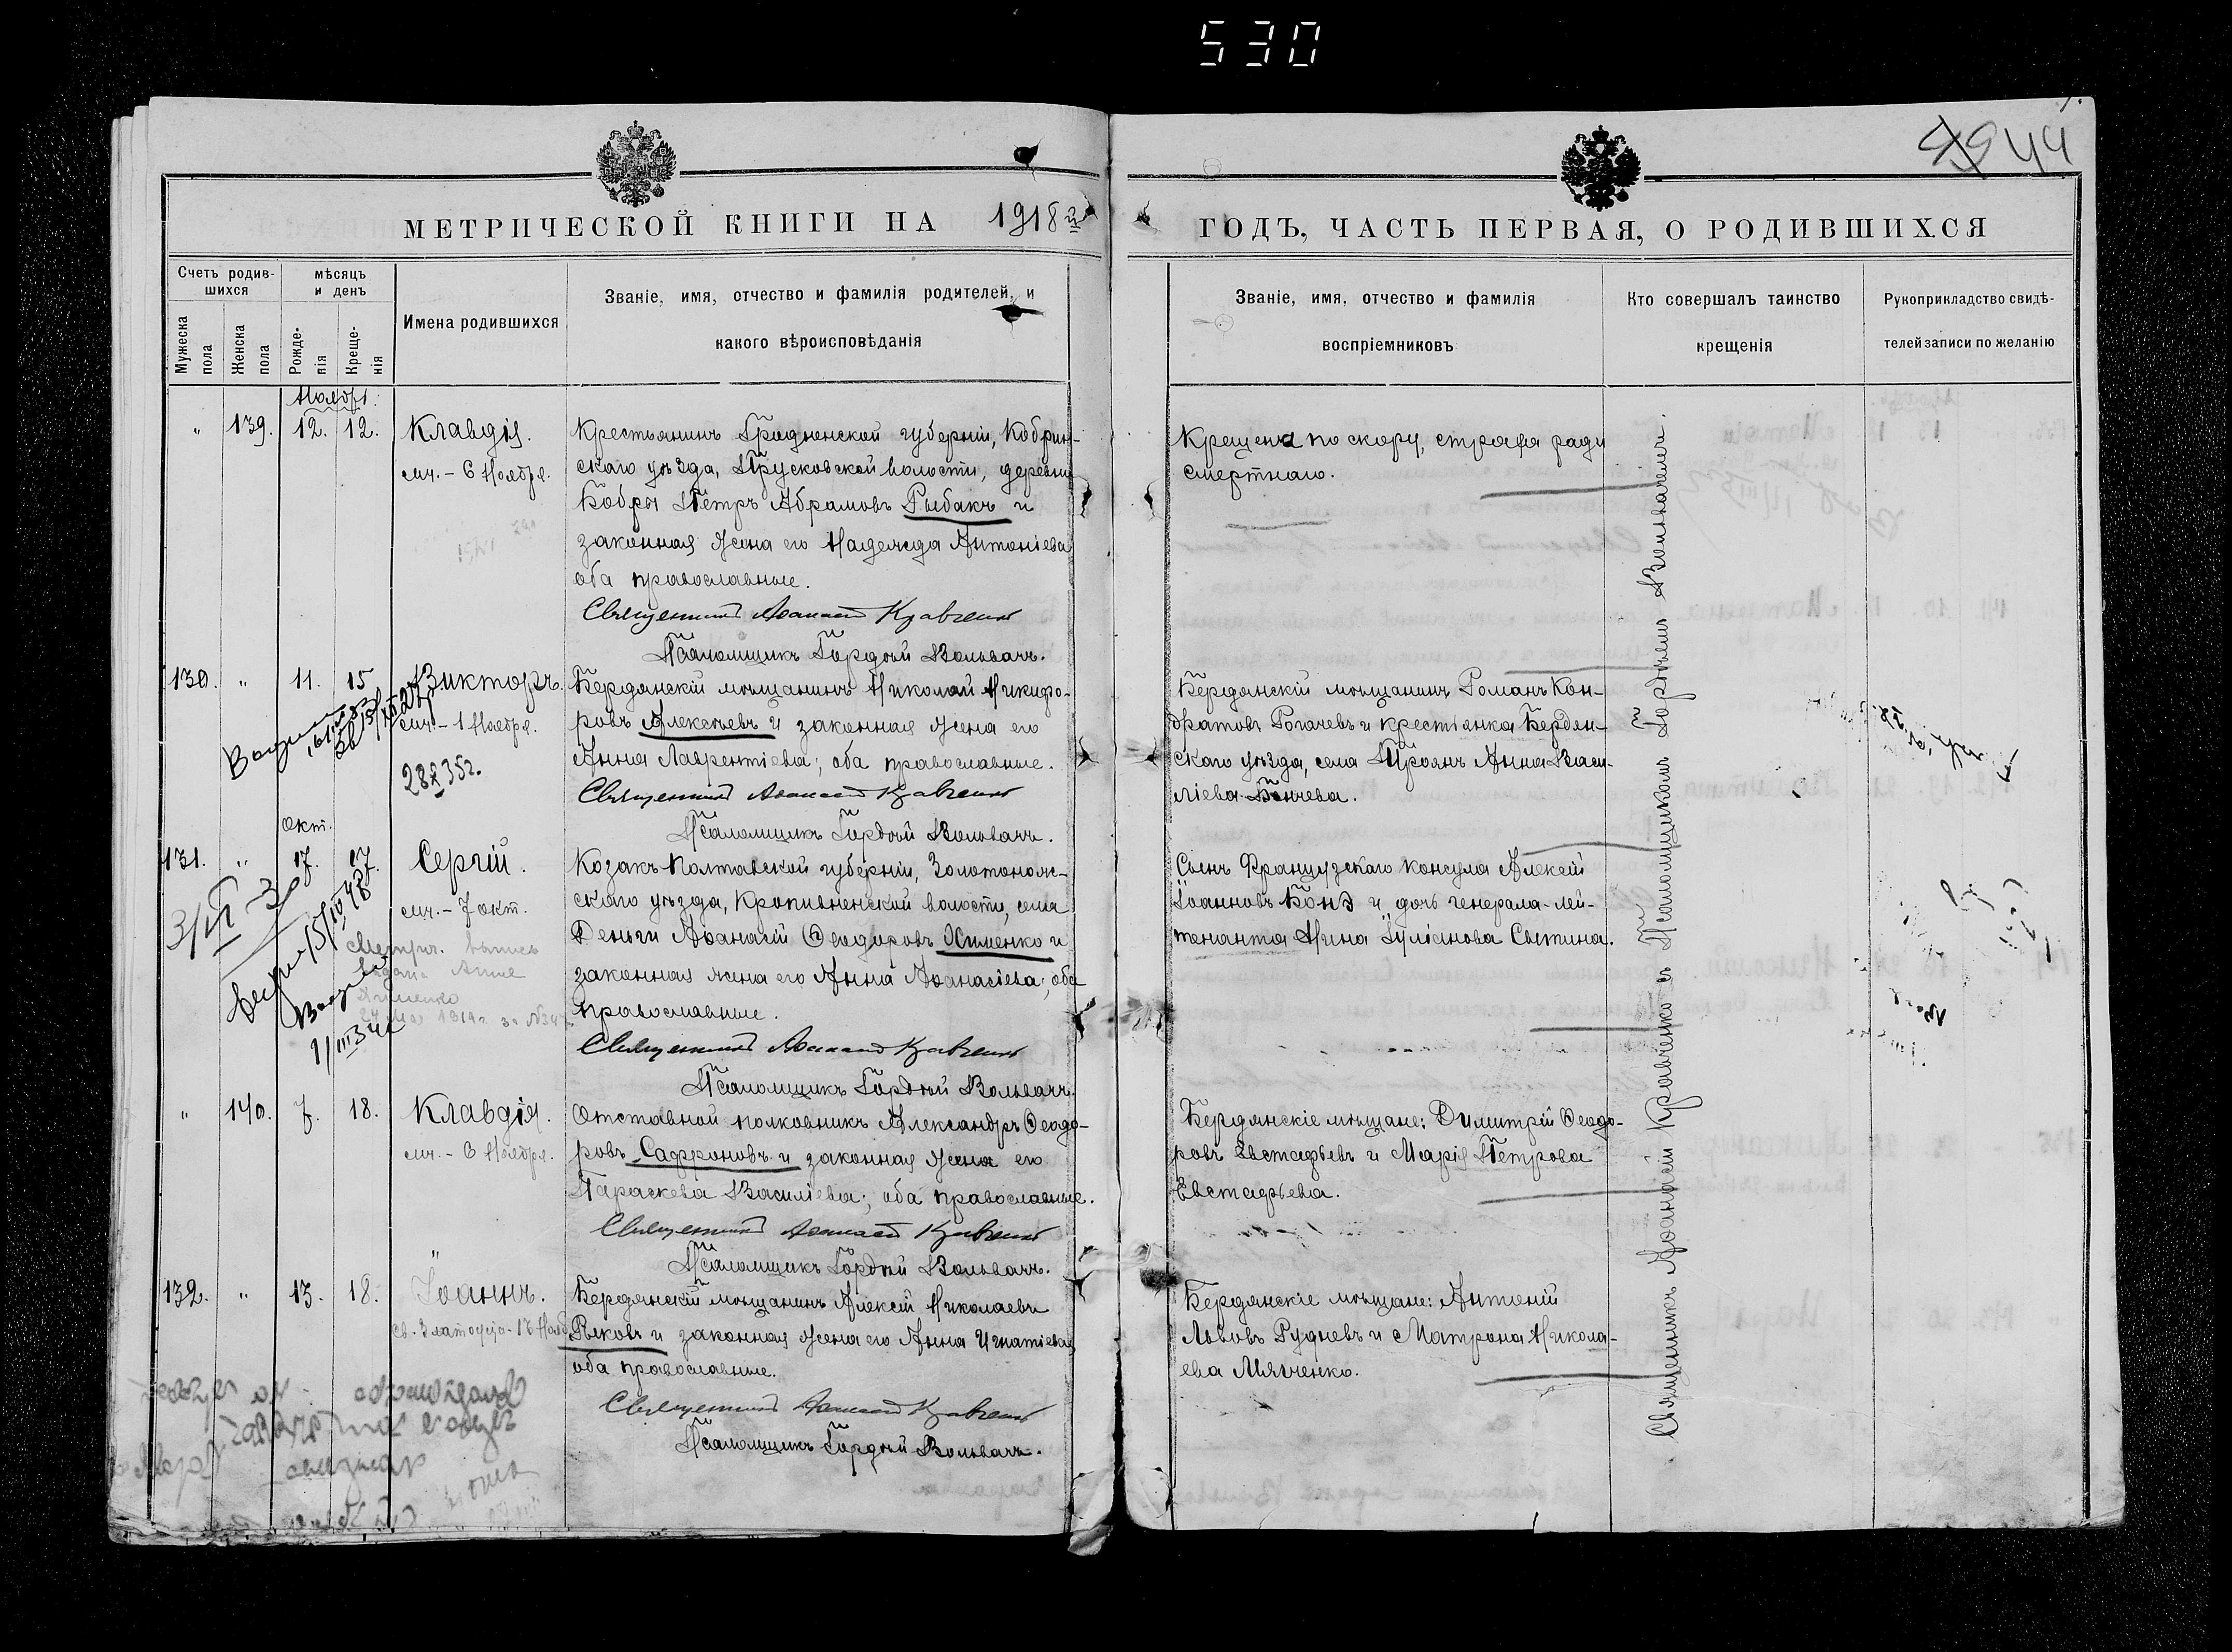 530
44
МЕТРИЧЕСКОЙ КНИГИ НА 1918 г
ГОДЪ, ЧАСТЬ ПЕРВАЯ, О РОДИВШИХСЯ
Счетъ родив-
шихся
Мужеска
пола
Женска
пола
мѣсяцъ
и день
Рожде-
нія
Креще-
нія
Имена родившихся
Званіе, имя, отчество и фамилія родителей, и
какого вѣроисповѣданія
Званіе, имя, отчество и фамилія
воспріемниковъ
Кто совершалъ таинство
крещенія
Рукоприкладство свидѣ-
телей записи по желанію
Ноябрь.
" 139. 12. 12. Клавдія.
мч. - 6 Ноября.
Крестьянинъ Гродненской губерніи, Кобрин-
скаго уѣзда, Прусковской волости, деревни
Бобры Петръ Абрамовъ Рыбакъ и
законная жена его Надежда Антоніева,
оба православные.
Священникъ Аѳанасій Кравченко
Псаломщикъ Гордѣй Вольвачъ.
Крещена по скору, страха ради
смертнаго.
130. " 11. 15 Викторъ.
мч. - 1 Ноября.
28 X 35 г.
Бердянскій мѣщанинъ Николай Никифо-
ровъ Алексѣевъ и законная жена его
Анна Лаврентіева; оба православные.
Священникъ Аѳанасій Кравченко
Псаломщикъ Гордѣй Вольвачъ.
Бердянскій мѣщанинъ Романъ Кон-
дратовъ Рогачевъ и крестьянка Бердян-
скаго уѣзда, села Троянъ Анна Васи-
ліева Бончева.
Окт.
131. " 17. 17. Сергій.
мч. - 7 окт.
Метрич. выпись
выдана Анне
Козакъ Полтавской губерніи, Золотонож-
скаго уѣзда, Кропивненской волости, села
Деньги Аѳанасій Ѳеодоровъ Якименко и
законная жена его Анна Аѳанасіева; оба
православные.
Священникъ Аѳанасій Кравченко
Псаломщикъ Гордѣй Вольвачъ.
Сынъ Французскаго консула Алексій
Іоанновъ Бонэ и дочь генерала-лей-
тенанта Нина Іуліанова Сытина.
" 140. 7. 18. Клавдія.
мч. - 6 Ноября.
Отставной полковникъ Александръ Ѳеодо-
ровъ Сафроновъ и законная жена его
Параскева Василіева; оба православные.
Священникъ Аѳанасій Кравченко
Псаломщикъ Гордѣй Вольвачъ.
Бердянскіе мѣщане: Димитрій Ѳеодо-
ровъ Евстафьевъ и Марія Петрова
Евстафьева.
132. " 13. 18. Іоаннъ.
Св. Златоуста - 13 Нояб.
Бердянскій мѣщанинъ Алексій Николаевъ
Рыковъ и законная жена его Анна Игнатіева,
оба православные.
Священникъ Аѳанасій Кравченко
Псаломщикъ Гордѣй Вольвачъ.
Бердянскіе мѣщане: Антоній
Львовъ Рудневъ и Матрона Никола-
ева Мятченко.
Священникъ Аѳанасій Кравченко съ Псаломщикомъ Гордѣемъ Вольвачемъ.